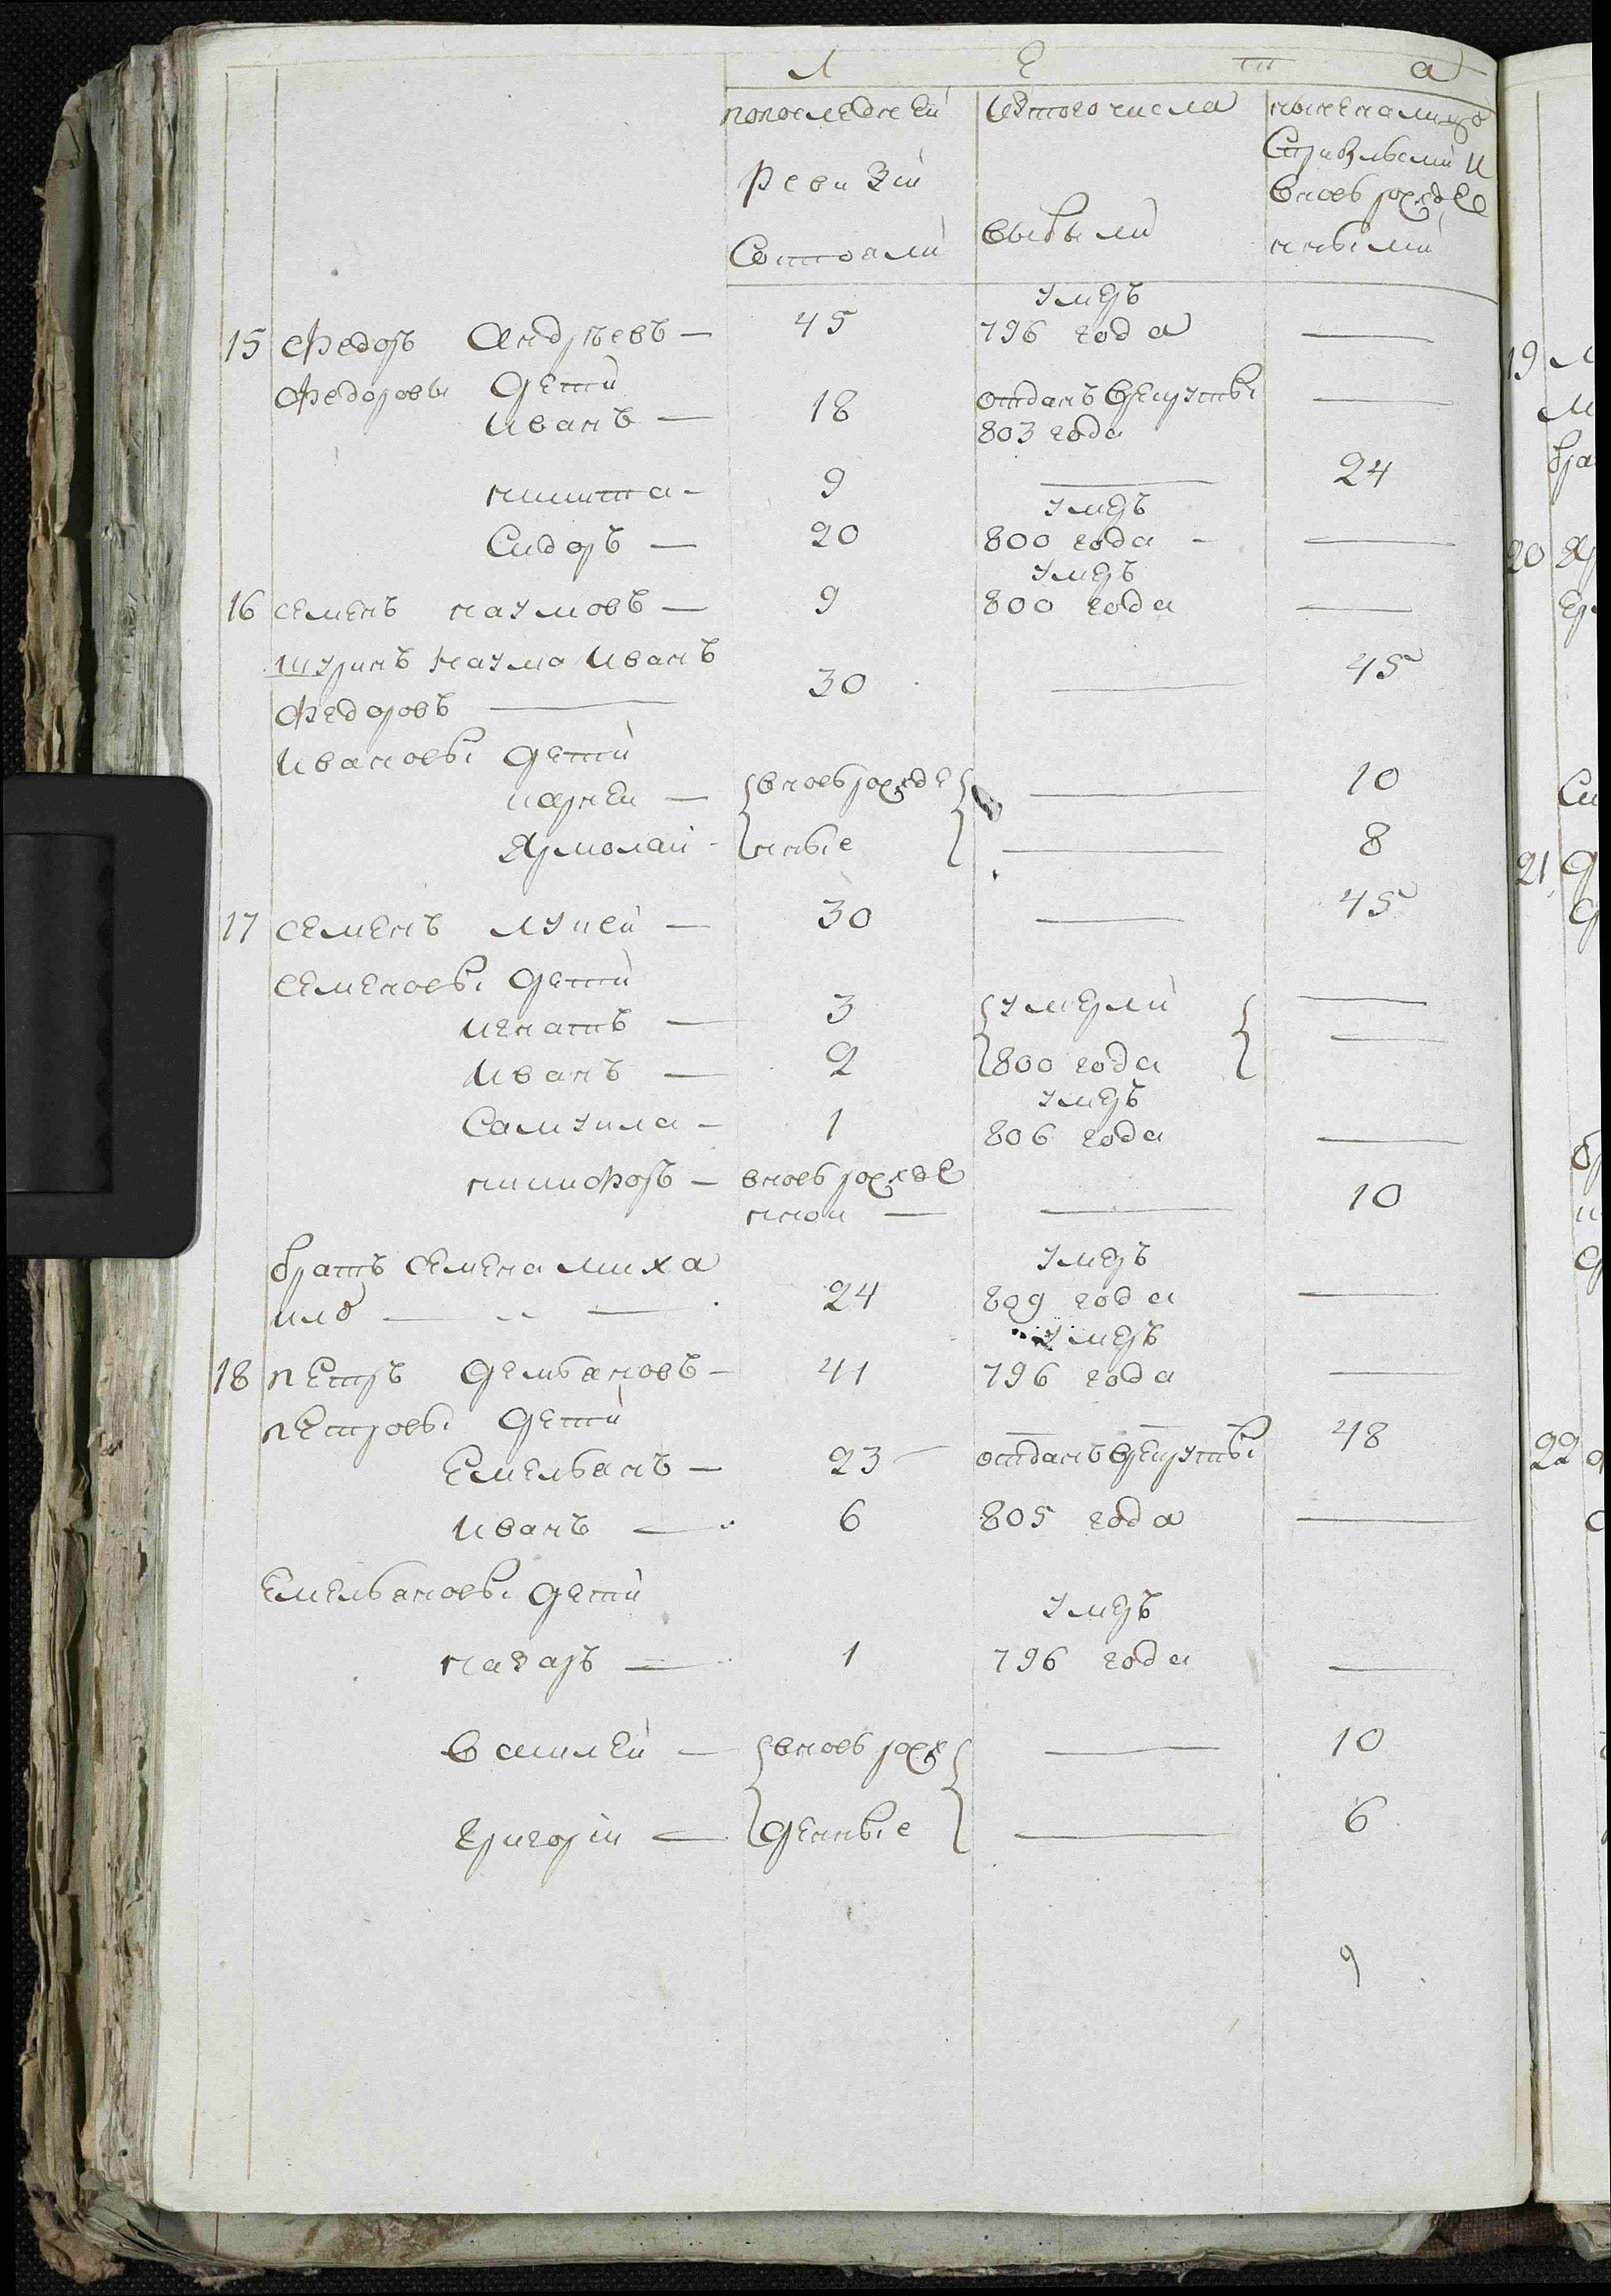 Л е т а
попоследней | Изтого числа | ныне налицо
ревизий | | Сприбылыми и
Состояли | выбыли | вновь рожде
нными
умеръ
15 Федоръ Андреевъ — 45 796 года —
Федоровы Дети отданъ врекруты
Иванъ — 18 803 года —
никита — 9 — 24
умеръ
Сидоръ — 20 800 года — —
умеръ
16 семенъ наумовъ — 9 800 года —
шуринъ наума Иванъ
Федоровъ — 30 — 45
Ивановы Дети
карней — { вновь рожде } — 10
Ярмолай { нные } — 8
17 семенъ лукей — 30 — 45
семеновы Дети
игнатъ — 3 { умерли } —
Иванъ — 2 { 800 года } —
умеръ
Самуила — 1 806 года —
никифоръ — вновь рожде
нной — — 10
братъ семена миха умеръ
ило — 24 809 года —
умеръ
18 петръ Демьановъ — 41 796 года —
петровы Дети
Емельанъ — 23 — отданъ врекруты 48
иванъ — 6 805 года —
Емельановы Дети
умеръ
назаръ — 1 796 года —
василей — { вновь рож } — 10
григорiй — { Денные } — 6
9
19
20
21
22